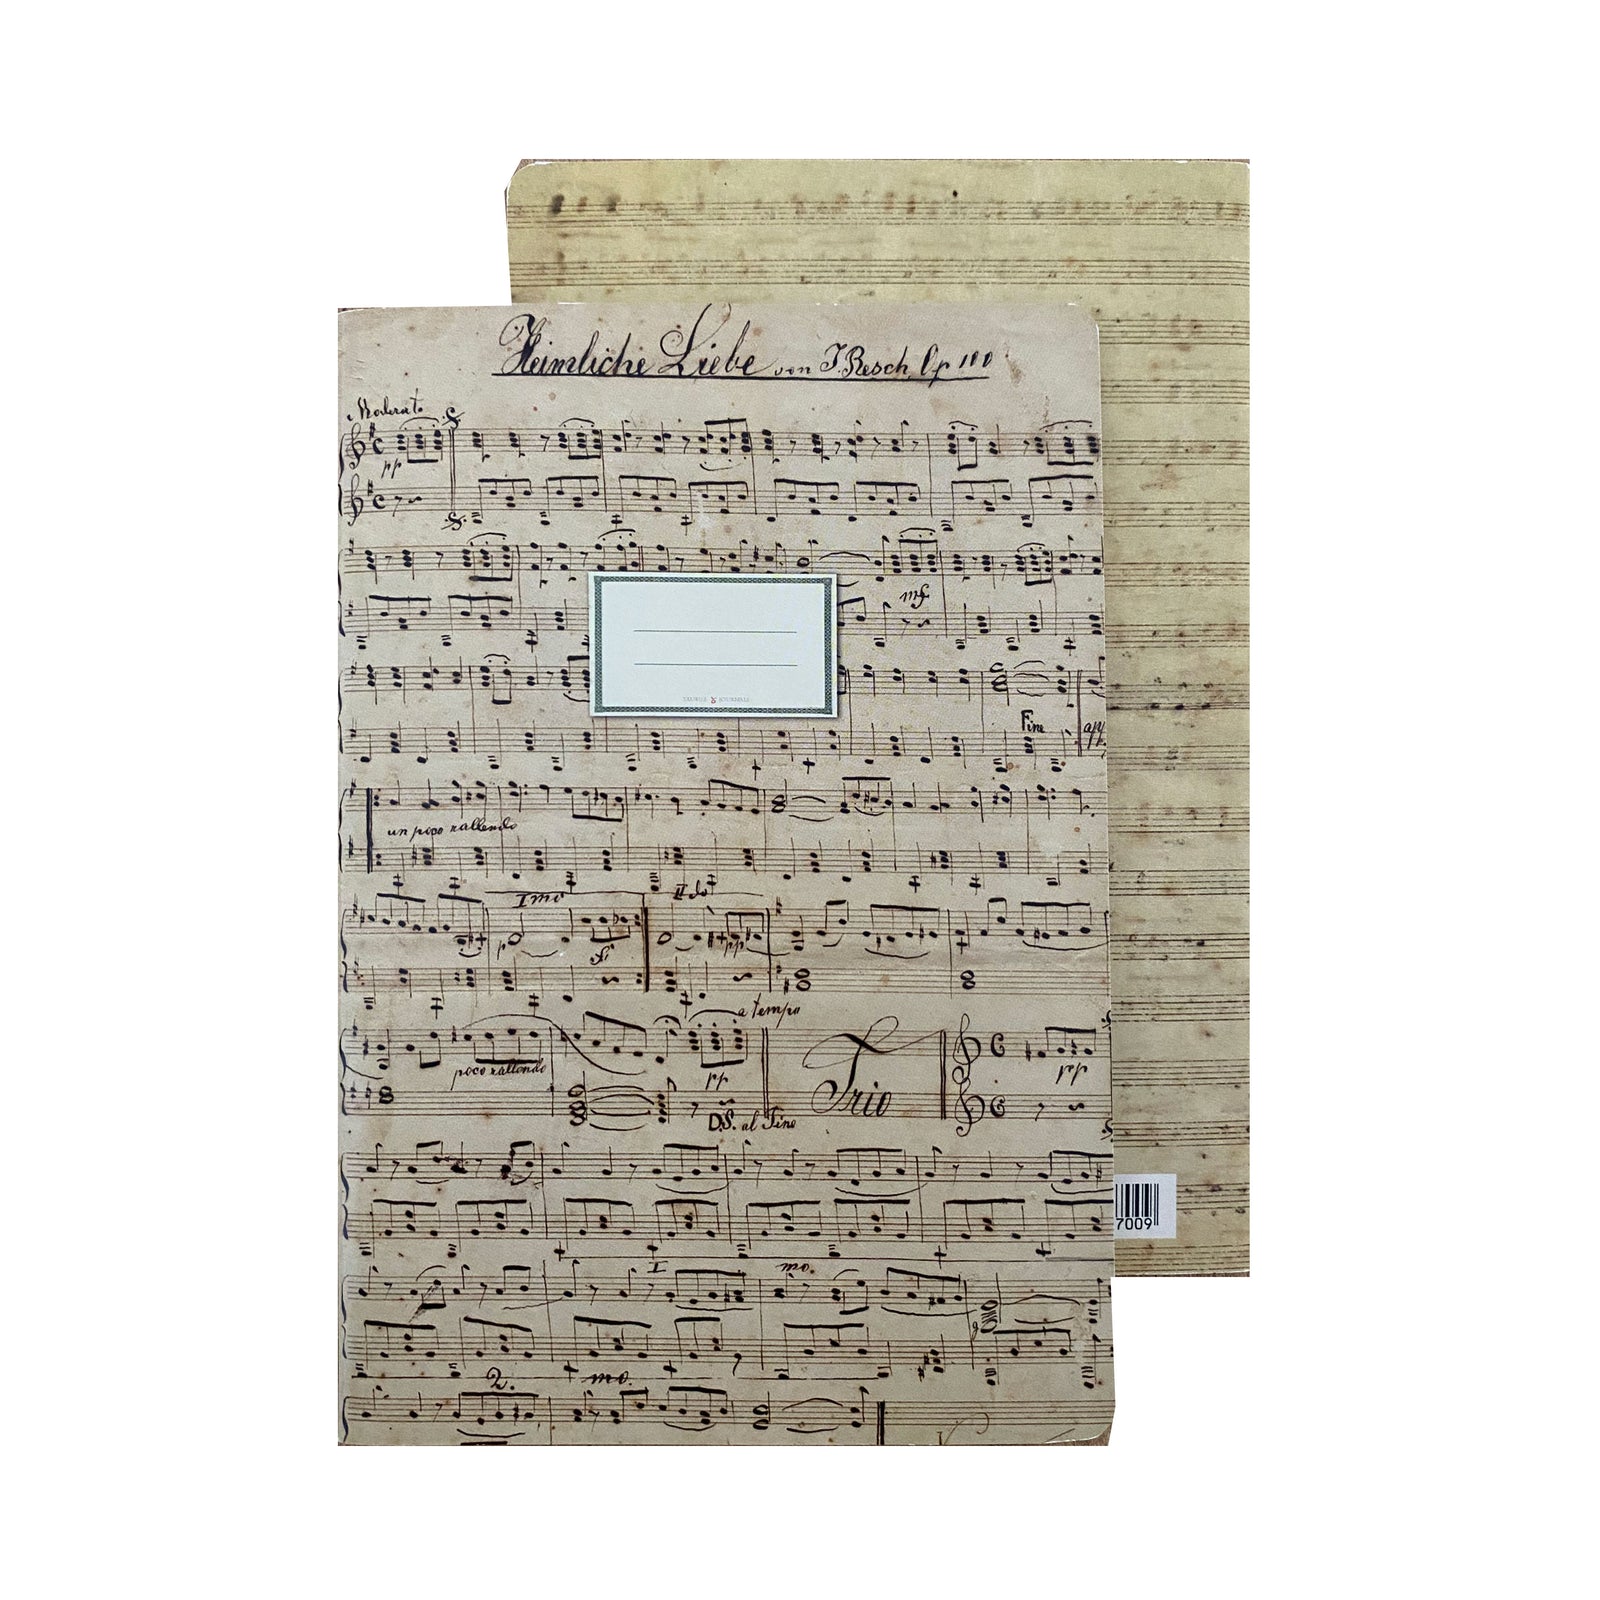 Heimliche Liebe von J. Resch, Op 100
Moderato
pp
mf
Fine
pp
un poco rallendo
Imo
IIdo
p
pp
a tempo
poco rallendo
pp
Trio
pp
D.S. al Fine
I mo.
2. mo.
7009